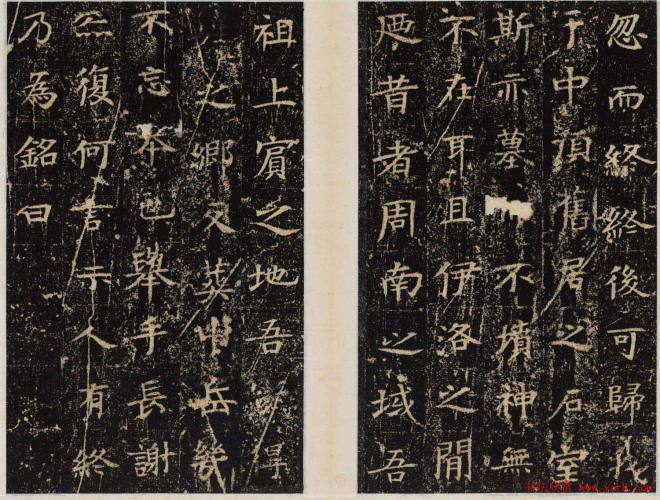 忽而終終後可歸我
于中頂舊居之石室
斯亦墓不墳神無
不在耳且伊洛之間
迺昔者周南之域吾
祖上賓之地吾
之鄉又葬中岳幾
不忘本也舉手長謝
亦復何言示人有終
乃為銘曰